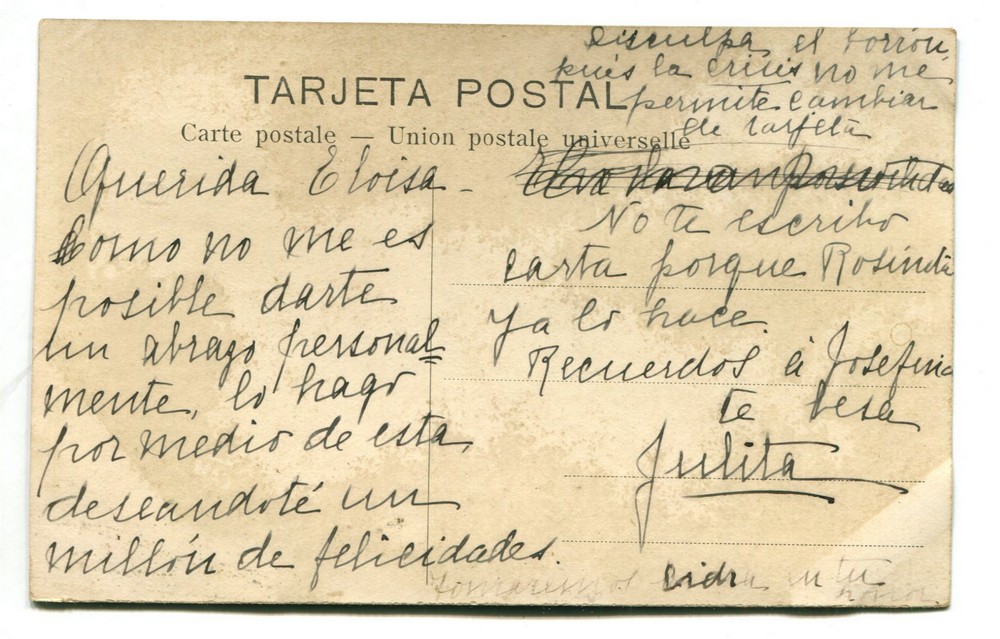 disculpa el borrón,
pués la crisis no me
permite cambiar
de tarjeta
TARJETA POSTAL
Carte postale — Union postale universelle
Querida Eloisa -
Como no me es
posible darte
un abrazo personal=
mente, lo hago
por medio de esta,
deseandoté un
millón de felicidades.
No te escribo
carta porque Rosinita
ya lo hace.
Recuerdos á Josefina
te besa
Julita
tomaremos sidra en tu
honor.